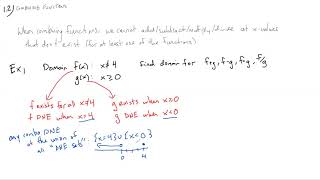 1.2) COMBINING FUNCTIONS
When combining functions, we cannot add/subtract/multiply/divide at x-values
that don't exist (for at least one of the functions)
Ex, Domain f(x): x≠4 find domain for f+g, f-g, f·g, f/g
g(x): x≥0
f exists for all x≠4 g exists when x≥0
f DNE when x=4 g DNE when x<0
any combo DNE
at the union of {x=4}∪{x<0}
all "DNE sets":
0 4